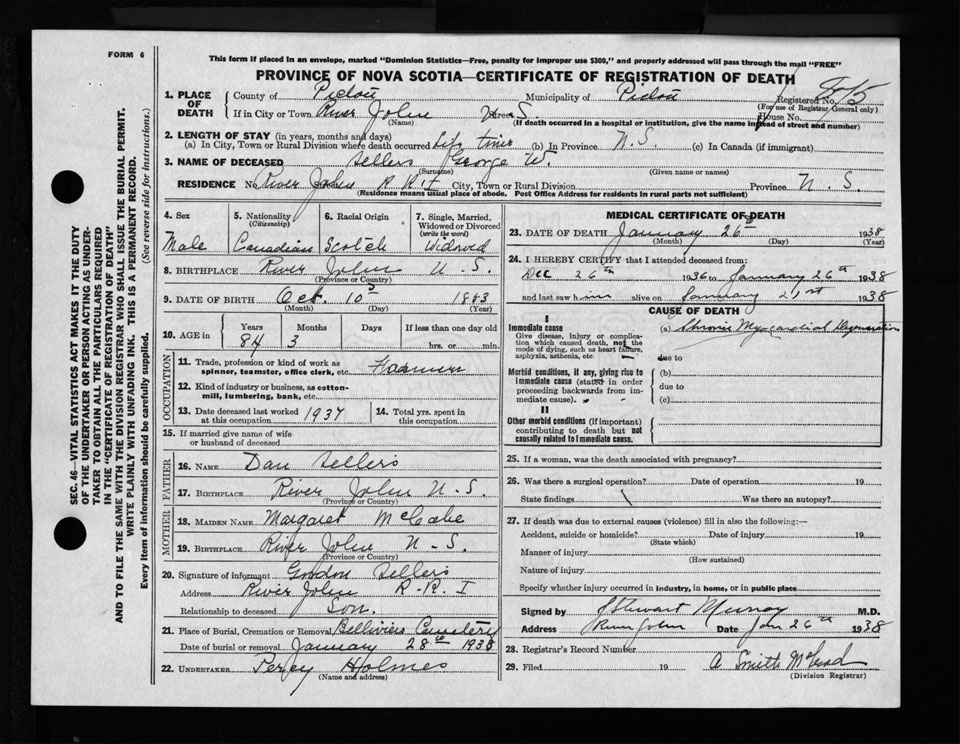 FORM 6
This form if placed in an envelope, marked "Dominion Statistics—Free, penalty for improper use $300," and properly addressed will pass through the mail "FREE"
PROVINCE OF NOVA SCOTIA—CERTIFICATE OF REGISTRATION OF DEATH
SEC. 46—VITAL STATISTICS ACT MAKES IT THE DUTY
OF THE UNDERTAKER OR PERSON ACTING AS UNDER-
TAKER TO OBTAIN ALL THE PARTICULARS REQUIRED
IN THE "CERTIFICATE OF REGISTRATION OF DEATH"
AND TO FILE THE SAME WITH THE DIVISION REGISTRAR WHO SHALL ISSUE THE BURIAL PERMIT.
WRITE PLAINLY WITH UNFADING INK. THIS IS A PERMANENT RECORD.
Every item of information should be carefully supplied. (See reverse side for instructions.)
1. PLACE OF DEATH County of Pictou Municipality of Pictou Registered No.
(For use of Registrar General only)
If in City or Town River John N.S. Street House No.
(Name) (If death occurred in a hospital or institution, give the name instead of street and number)
2. LENGTH OF STAY (in years, months and days)
(a) In City, Town or Rural Division where death occurred Life time (b) In Province N.S. (c) In Canada (if immigrant)
3. NAME OF DECEASED Sellers George W.
(Surname) (Given name or names)
RESIDENCE No. River John R R I City, Town or Rural Division Province N.S.
(Residence means usual place of abode. Post Office Address for residents in rural parts not sufficient)
4. Sex 5. Nationality (Citizenship) 6. Racial Origin 7. Single, Married, Widowed or Divorced (write the word)
Male Canadian Scotch Widowed
8. BIRTHPLACE River John N.S.
(Province or Country)
9. DATE OF BIRTH Oct. 10 1853
(Month) (Day) (Year)
10. AGE in Years Months Days If less than one day old
84 3 hrs. or min.
OCCUPATION
11. Trade, profession or kind of work as spinner, teamster, office clerk, etc. Farmer
12. Kind of industry or business, as cotton-mill, lumbering, bank, etc.
13. Date deceased last worked at this occupation 1937 14. Total yrs. spent in this occupation
15. If married give name of wife or husband of deceased
FATHER
16. NAME Dan Sellers
17. BIRTHPLACE River John N.S.
(Province or Country)
MOTHER
18. MAIDEN NAME Margaret McCabe
19. BIRTHPLACE River John N-S.
(Province or Country)
20. Signature of informant Gordon Sellers
Address River John R-R. I
Relationship to deceased Son.
21. Place of Burial, Cremation or Removal Cemetery
Date of burial or removal January 28th 1938
22. UNDERTAKER Percy Holmes
(Name and address)
MEDICAL CERTIFICATE OF DEATH
23. DATE OF DEATH January 26th 1938
(Month) (Day) (Year)
24. I HEREBY CERTIFY that I attended deceased from:
Dec 26th 1936 to January 26th 1938
and last saw him alive on January 21st 1938
CAUSE OF DEATH
I
Immediate cause (a) Chronic Myocardial Degeneration
Give disease, injury or complica-
tion which caused death, not the
mode of dying, such as heart failure,
asphyxia, asthenia, etc. due to
Morbid conditions, if any, giving rise to (b)
immediate cause (stated in order due to
proceeding backwards from im-
mediate cause). (c)
II
Other morbid conditions (if important)
contributing to death but not
causally related to immediate cause.
25. If a woman, was the death associated with pregnancy?
26. Was there a surgical operation? Date of operation 19
State findings Was there an autopsy?
27. If death was due to external causes (violence) fill in also the following:—
Accident, suicide or homicide? Date of injury 19
(State which)
Manner of injury
(How sustained)
Nature of injury
Specify whether injury occurred in industry, in home, or in public place
Signed by J Stewart Murray M.D.
Address River John Date Jan 26th 1938
28. Registrar's Record Number
29. Filed 19 A Smith McLeod
(Division Registrar)